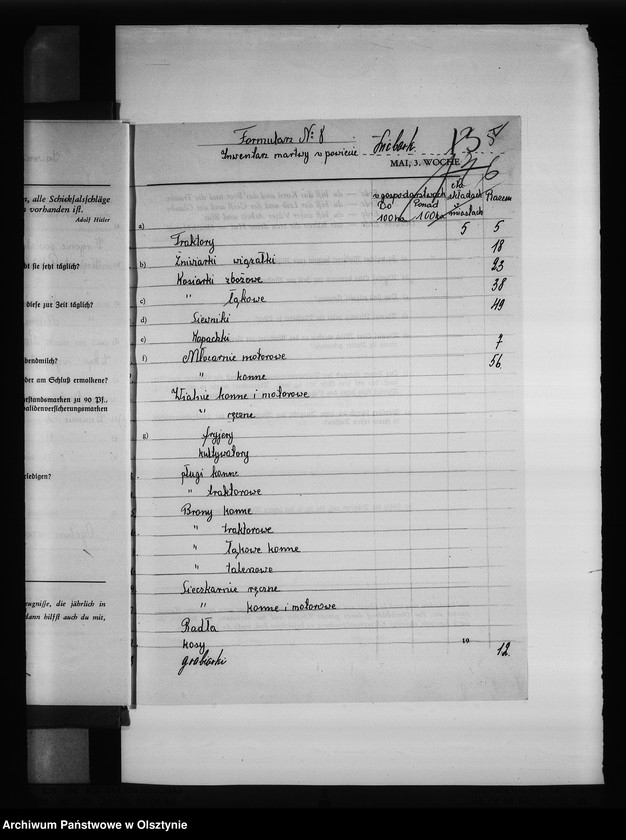 , alle Schicksalsschläge
vorhanden ist.
Adolf Hitler
ht sie jetzt täglich?
diese zur Zeit täglich?
bendmilch?
der am Schluß ermolkene?
standsmarken zu 90 Pf.,
validenversicherungsmarken
ledigen?
eugnisse, die jährlich in
dann hilfst auch du mit,
Formularz № 8
Inwentarz martwy w powiecie
MAI, 3. WOCHE
w gospodarstwach
Do 100 ha
Ponad 100 ha
składach
miastach
Razem
a)
Traktory 5 5
b) Żniwiarki wiązałki 18
Kosiarki zbożowe 23
c) " łąkowe 38
d) Siewniki 49
e) Kopaczki
f) Młocarnie motorowe 7
" konne 56
Wialnie konne i motorowe
" ręczne
g) fryjery
kultywatory
pługi konne
" traktorowe
Brony konne
" traktorowe
" Łąkowe konne
" talerzowe
Sieczkarnie ręczne
" konne i motorowe
Radła
kosy 19
grabiarki 12
Archiwum Państwowe w Olsztynie